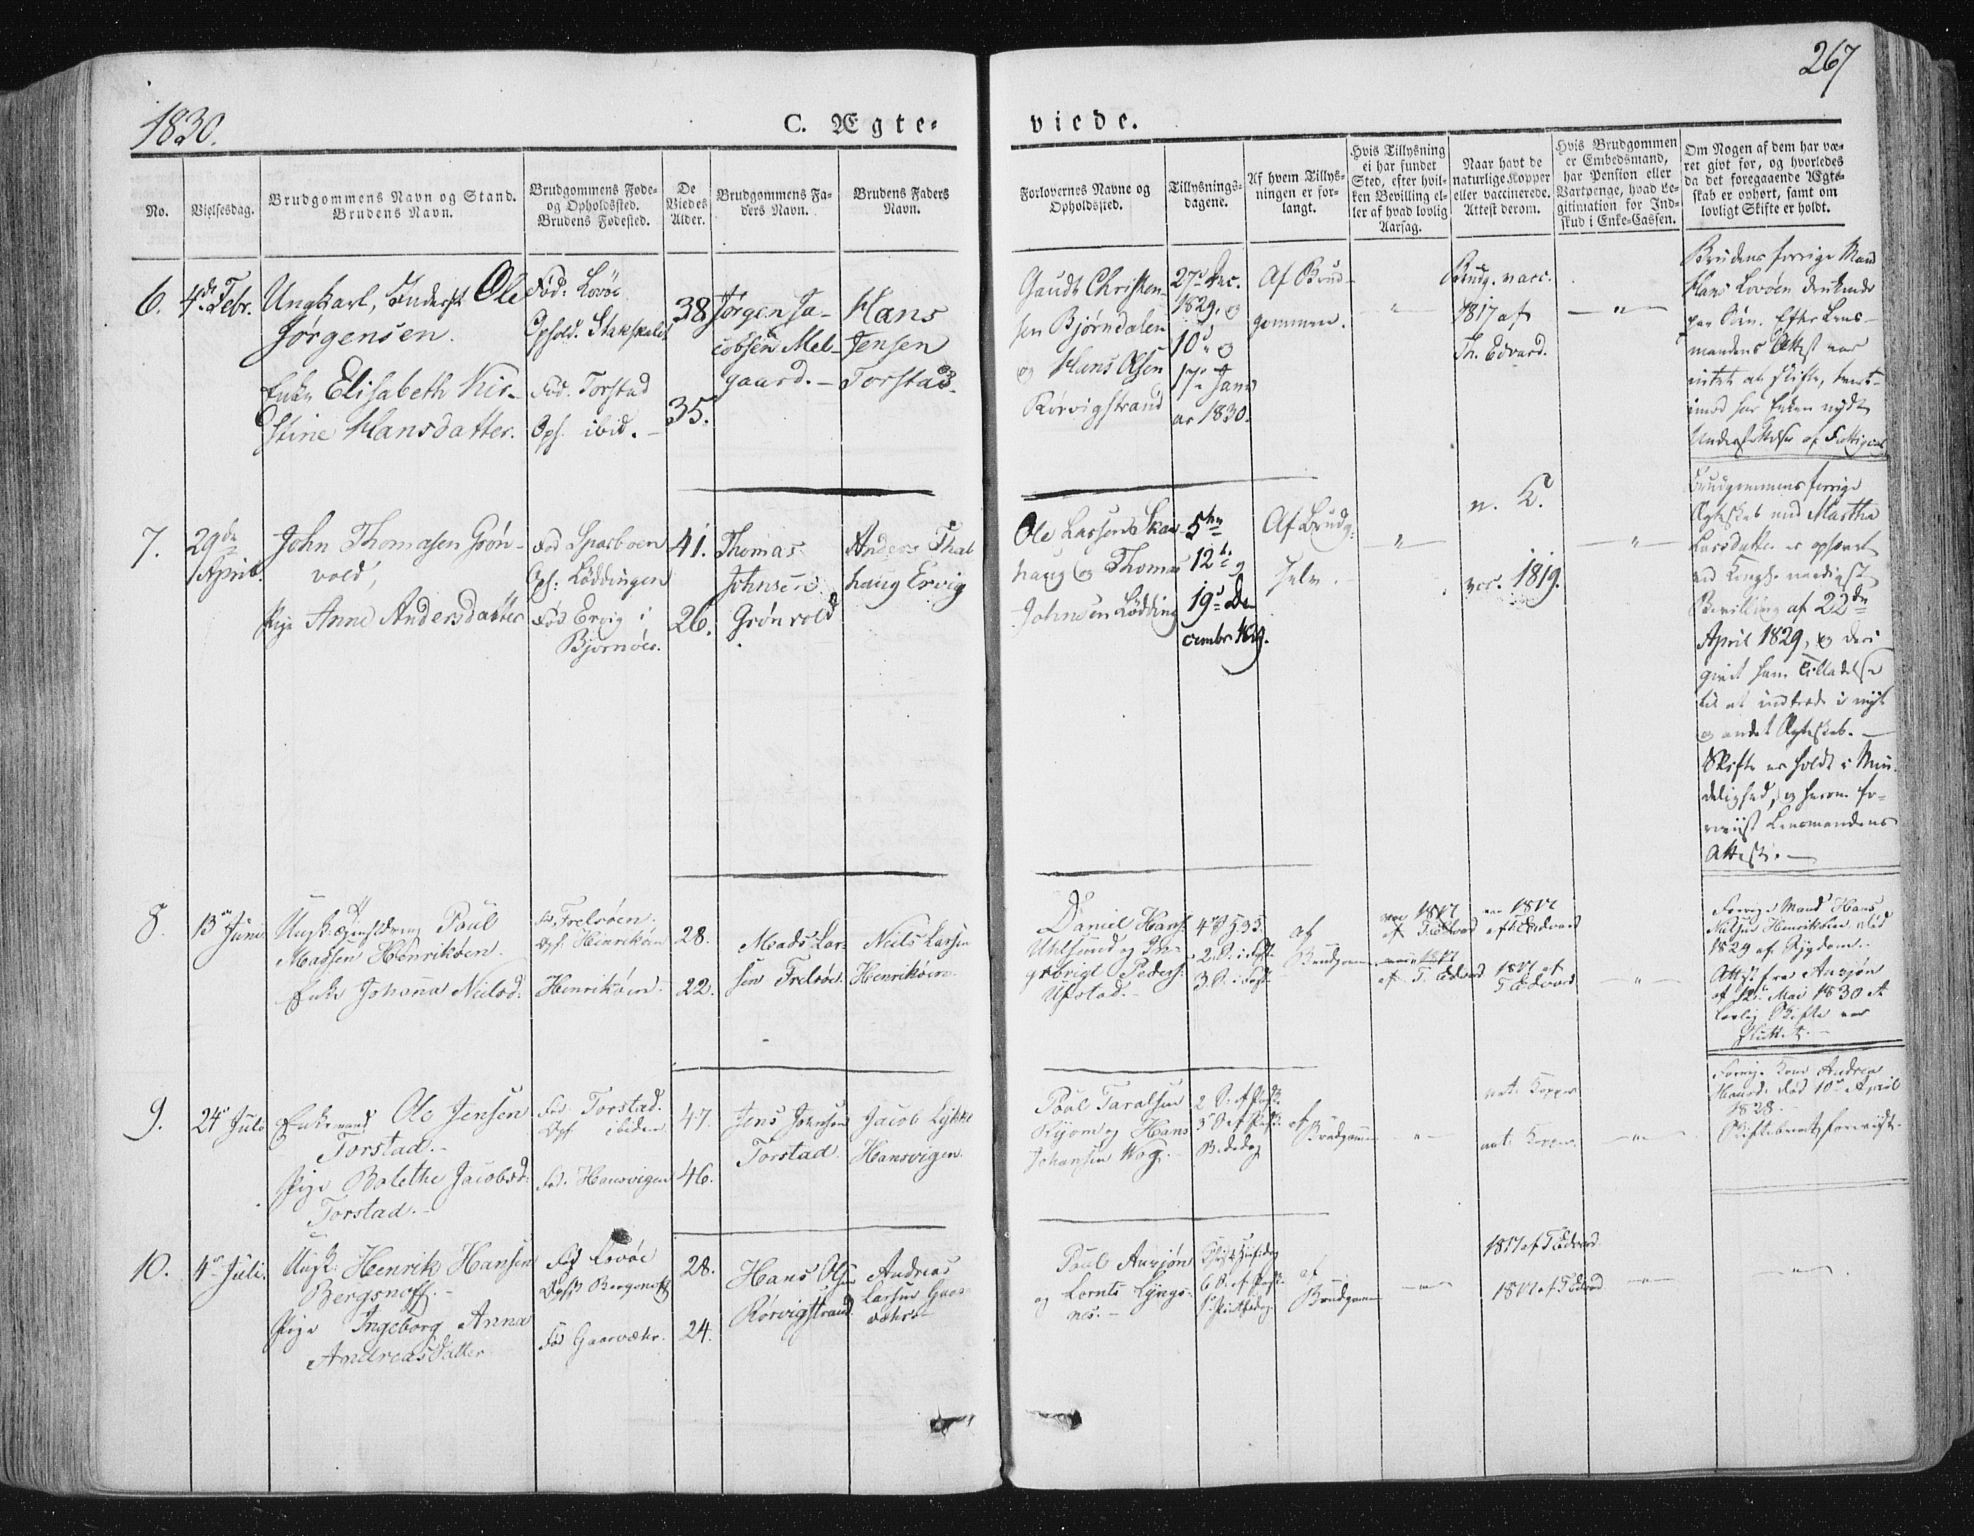 267
1830.
C. Ægte-
viede.
No.
Vielsesdag.
Brudgommens Navn og Stand.
Brudens Navn.
Brudgommens Føde-
og Opholdssted.
Brudens Fødested.
De
Viedes
Alder.
Brudgommens Fa-
ders Navn.
Brudens Faders
Navn.
Forlovernes Navne og
Opholdssted.
Tillysnings-
dagene.
Af hvem Tillys-
ningen er for-
langt.
Hvis Tillysning
ei har fundet
Sted, efter hvil-
ken Bevilling el-
ler af hvad lovlig
Aarsag.
Naar havt de
naturlige Kopper
eller vaccinerede.
Attest derom.
Hvis Brudgommen
er Embedsmand,
har Pension eller
Vartpenge, hvad Le-
gitimation for Ind-
skud i Enke-Cassen.
Om Nogen af dem har væ-
ret givt før, og hvorledes
da det foregaaende Ægte-
skab er ophørt, samt om
lovligt Skifte er holdt.
6.
4de Febr.
Ungkarl, Inderst Ole
Jørgensen.
Enke Elisabeth Kir-
stine Hansdatter.
Fød: Lovöe
Ophold.
Fød. Torstad
Oph. ibid. -
38
35.
Jørgen Ja-
cobsen Mel-
gaard. -
Hans
Jensen
Torstad.
Gaudt Christen-
sen Bjørndalen
og Hans Olsen
Rørvigstrand
27de Dec.
1829, og
10de og
17de Janu
ar 1830.
Af Brud-
gommen.
- " -
Brudg. vacc.
1817 af
Th. Edvard.
- " -
Brudens forrige Mand
Hans Lovöen druknede
paa Söen. Efter Lens-
mandens Attest var
intet at skifte, tvert-
imod har Enken nydt
Understöttelse af Fattigvæs
7.
29de
April.
John Thomasen Grön-
vold,
Pige Anne Andersdatter
Fød Sparboen
Oph: Løddingen
Fød Ervig i
Bjørnöer.
41.
26.
Thomas
Johnsen
Grönvold
Anders
haug Ervig
Ole Larsen Skav
haug og Thomas
Johnsen Lødding
5te
12te og
19de De
cembr 1829.
Af Brudg:
selv.
- " -
n. K.
vcc. 1819.
- " -
Brudgommens forrige
Ægteskab med Martha
Larsdatter er ophævet
ved Bevilling af 22de
April 1829, og deri
givet ham Tilladelse
til at indtræde i nyt
og andet Ægteskab. -
Skifte er holdt i Min-
delighed, og herom fo-
reviist Lensmandens
Attest. -
8.
13de Juni
Ungk. Poul
Madsen Henriköen.
Enke Johanna Nielsd.
Fød Frelsöen.
Oph. Henriköen
Henriköen.
28.
22.
Mads Lar
sen Frelsöe
Niels Larsen
Henriköen.
Daniel Hans.
Pedersen
Ufstad. -
af
Brudgommen
1817
af T. Edvard
af T. Edvard
1817
af T. Edvard
1817 af
T. Edvard
- " -
Forrige Mand Hans
Nielsen Henriköen död
1829 af Sygdom.
Attest fra Aursjøn
af 12te Mai 1830 at
lovlig Skifte var
sluttet. -
9.
24de Juli
Enkemand Ole Jensen
Torstad. -
Pige Balethe Jacobsd.
Torstad. -
Fød Torstad.
Oph ibidem
Fød. Hansvigen
47.
46.
Jens Johnsen
Torstad.
Jacob Lykke
Hansvigen.
Poul Taralsen
og Hans
Johansen Wog. -
Bededag
af
Brudgommen
- " -
nat. Kopper
nat. Kopper
- " -
Forrige Kone Andrea
Hansd. död 10de April
1828. -
Skiftebrev foreviist.
10.
4de Juli.
Ungk. Henrik Hansen
Bergsnoff. -
Pige Ingeborg Anna
Andreasdatter
Fød Lovöe
Oph Bergsnoff
Fød Gaasvæhr.
28.
24.
Hans Olsen
Rörvigstrand
Andreas
Larsen Gaas-
væhr
Poul Aursjøn
og Lornts Lyngs-
nes. -
af
Brudgommen
- " -
1817 af T. Edvard
1817 af T. Edvard
- " -
- " -